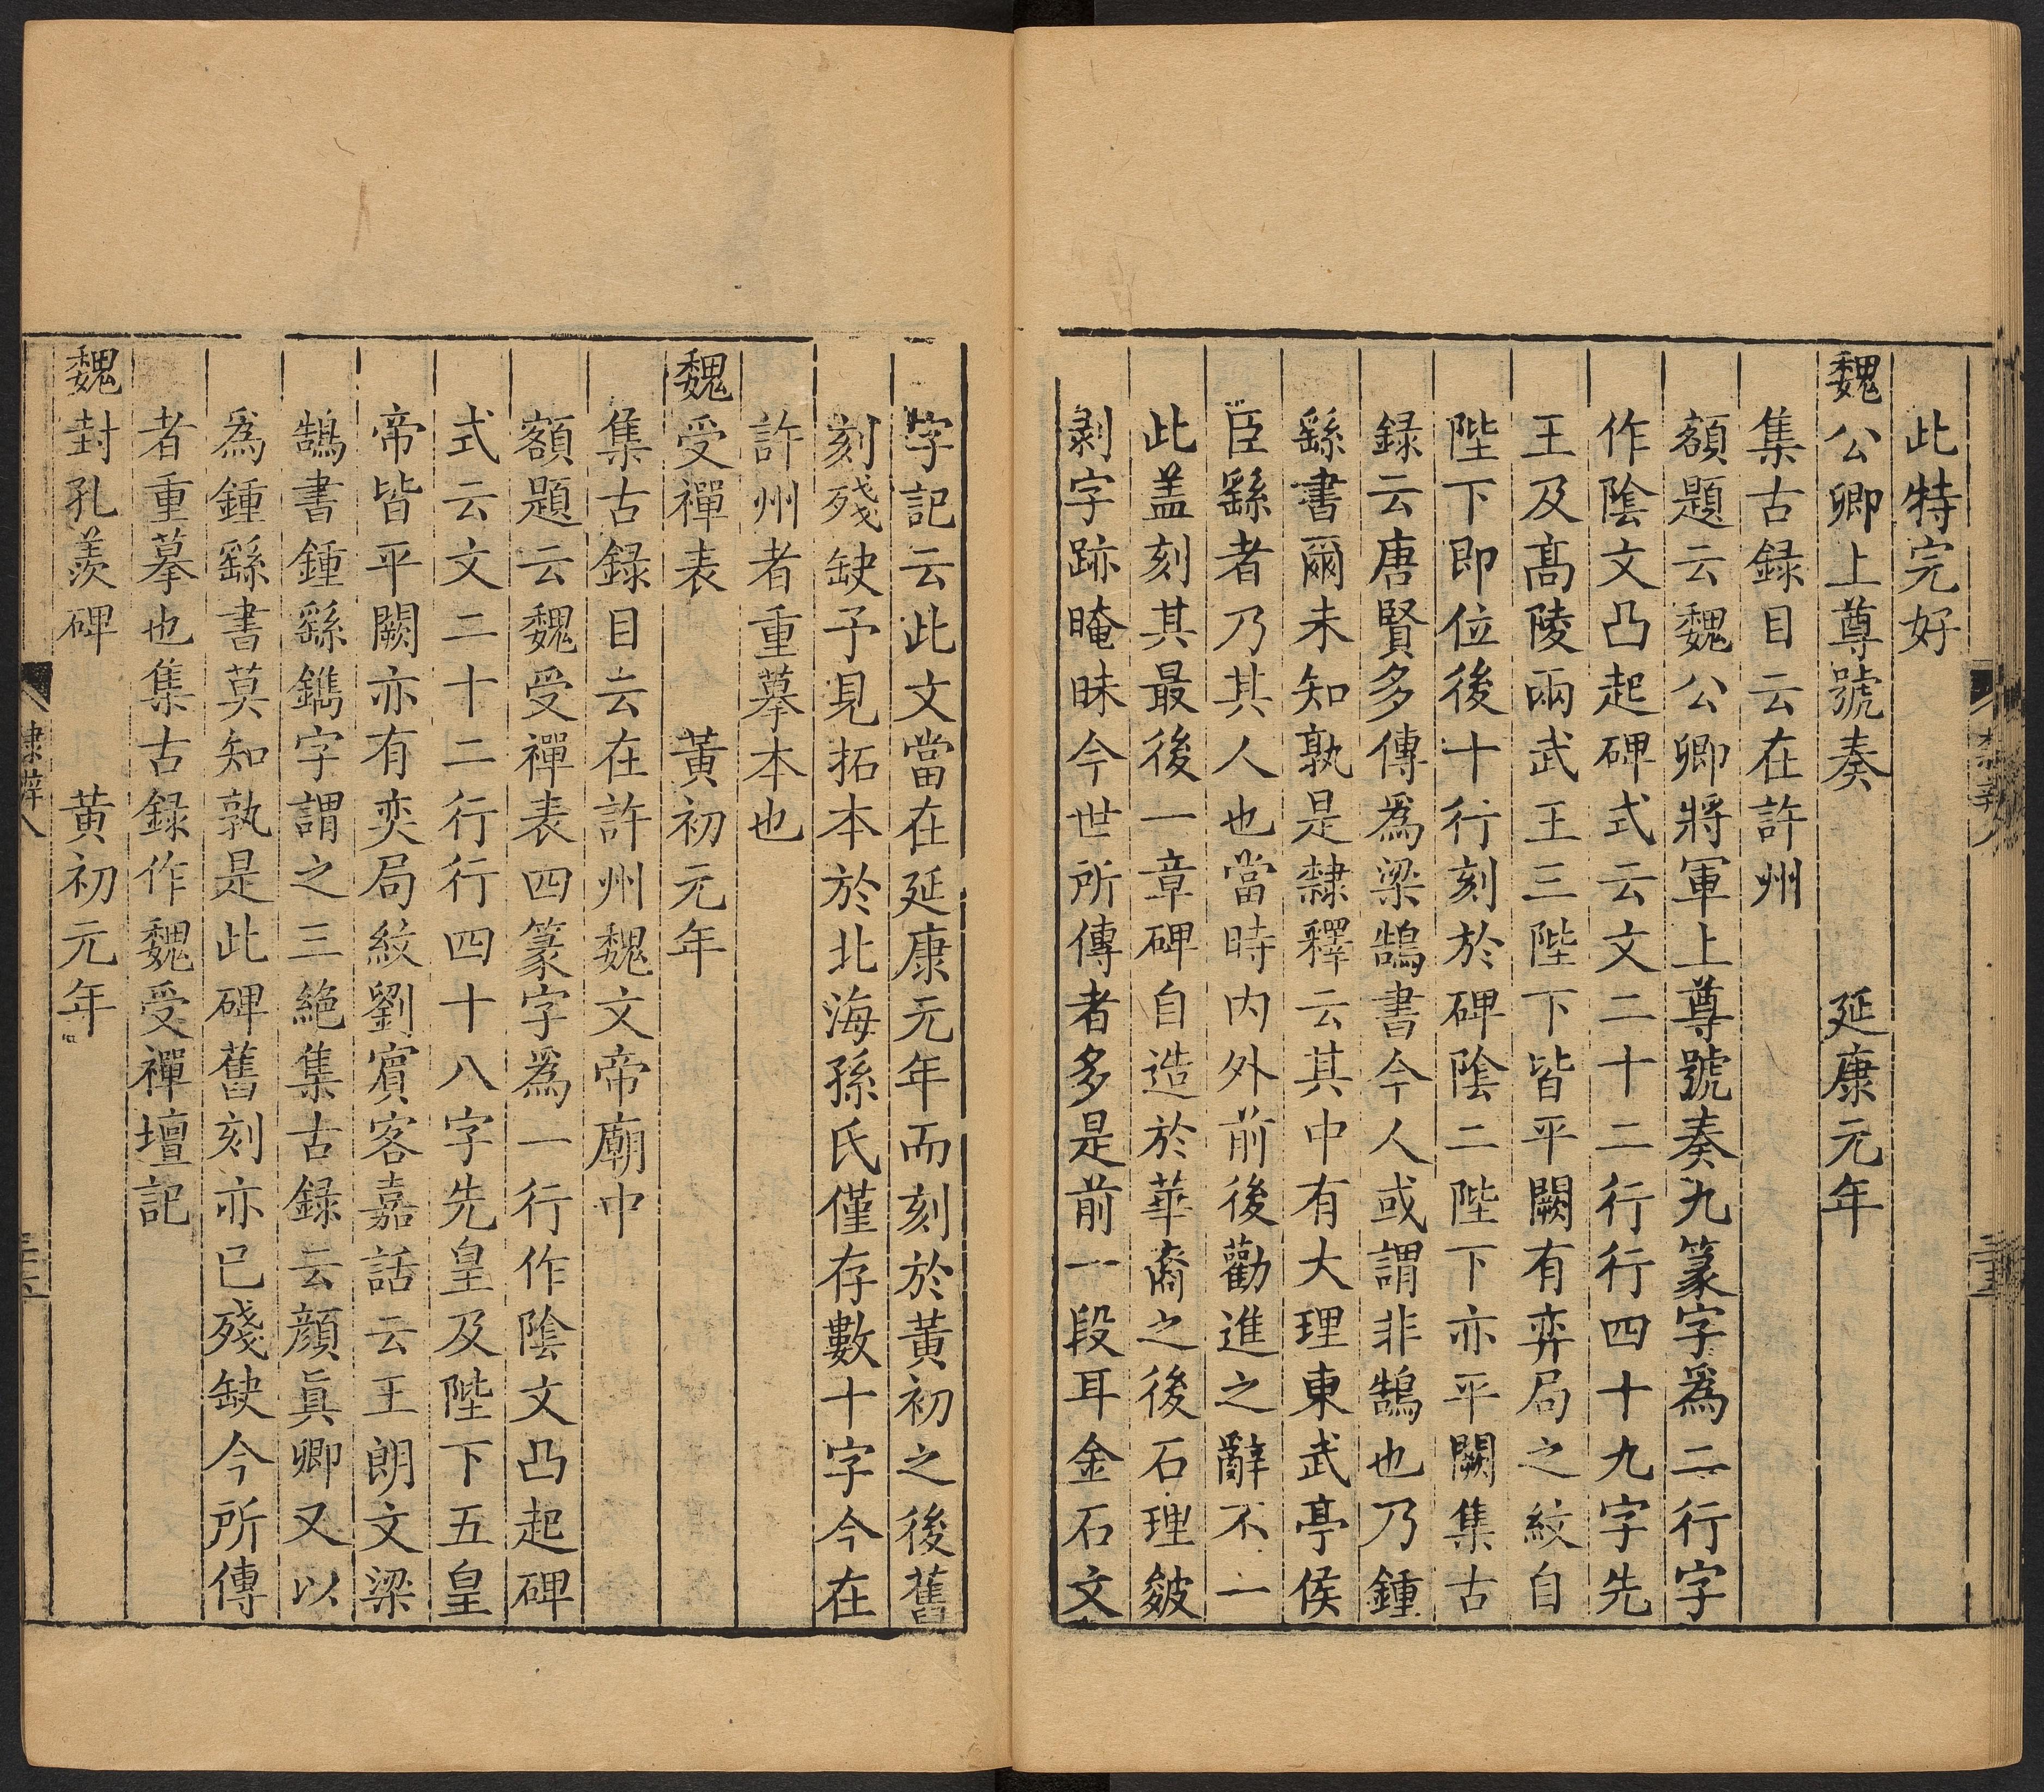 此特完好
魏公卿上尊號奏 延康元年
集古録目云在許州
額題云魏公卿將軍上尊號奏九篆字爲二行字
作陰文凸起碑式云文二十二行行四十九字先
王及髙陵兩武王三陛下皆平闕有弈局之紋自
陛下即位後十行刻於碑陰二陛下亦平闕集古
録云唐賢多傳爲梁鵠書今人或謂非鵠也乃鍾
繇書爾未知孰是隷釋云其中有大理東武亭侯
臣繇者乃其人也當時内外前後勸進之辭不一
此盖刻其最後一章碑自造於華裔之後石理皴
剥字跡晻昧今世所傳者多是前一段耳金石文
字記云此文當在延康元年而刻於黄初之後舊
刻殘缺予見拓本於北海孫氏僅存數十字今在
許州者重摹本也
魏受禪表 黄初元年
集古録目云在許州魏文帝廟中
額題云魏受禪表四篆字爲一行作陰文凸起碑
式云文二十二行行四十八字先皇及陛下五皇
帝皆平闕亦有奕局紋劉賔客嘉話云王朗文梁
鵠書鍾繇鐫字謂之三絶集古録云顔真卿又以
爲鍾繇書莫知孰是此碑舊刻亦已殘缺今所傳
者重摹也集古録作魏受禪壇記
魏封孔羨碑 黄初元年
隷辨八